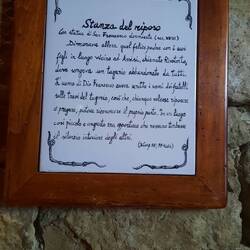 Stanza del riposo
Con statua di San Francesco dormiente (sec. XVII)
Dimoravano allora quel felice padre con i suoi
figli in luogo vicino ad Assisi, chiamato Rivotorto,
dove sorgeva un tugurio abbandonato da tutti.
L'uomo di Dio Francesco aveva scritto i nomi dei fratelli
sulle travi del tugurio, così che, chiunque volesse riposare
o pregare, potesse riconoscere il proprio posto. In un luogo
così piccolo e angusto era opportuno che nessuno turbasse
il silenzio interiore degli altri.